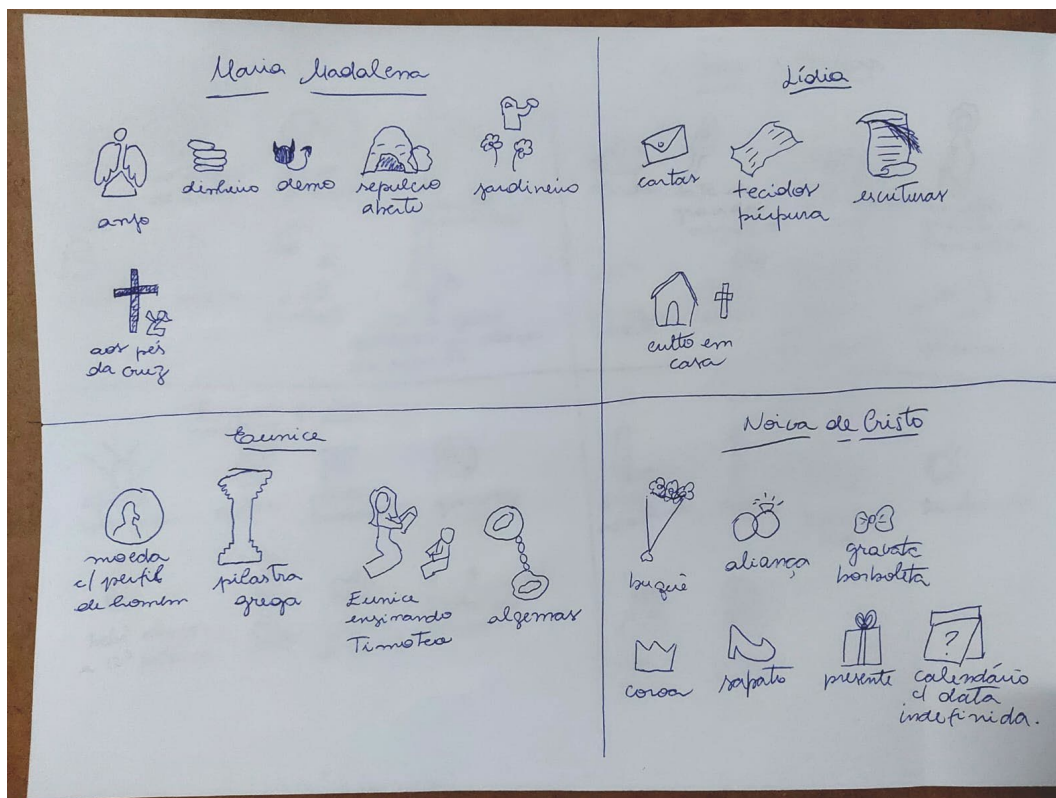 Maria Madalena
anjo
dinheiro
demo
sepulcro
aberto
jardineiro
aos pés
da cruz
Lídia
cartas
tecidos
púrpura
escrituras
culto em
casa
Eunice
moeda
c/ perfil
de homem
pilastra
grega
Eunice
ensinando
Timoteo
algemas
Noiva de Cristo
buquê
aliança
gravata
borboleta
coroa
sapato
presente
calendário
c/ data
indefinida.
?